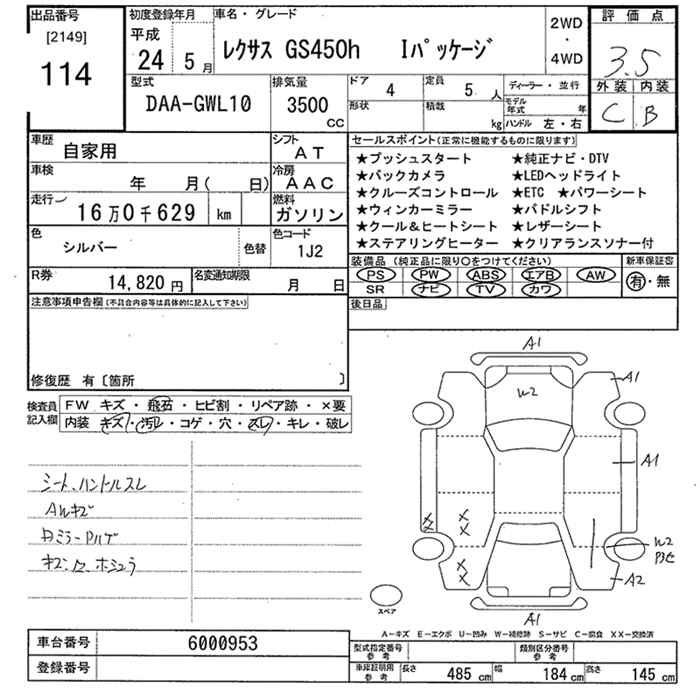 出品番号
[2149]
114
初度登録年月
平成
24 5月
車名・グレード
レクサス GS450h Iパッケージ
2WD
・
4WD
評価点
3.5
外装 内装
C B
型式
DAA-GWL10
排気量
3500
CC
ドア 4
定員 5人
ディーラー・並行
形状
積載 kg
モデル年式 年
ハンドル 左・右
車歴
自家用
シフト
AT
車検
年 月( 日)
冷房
AAC
走行
16万0千629 km
燃料
ガソリン
色
シルバー
色替
色コード
1J2
R券
14,820円
名変通知期限
月 日
セールスポイント(正常に機能するものに限ります)
★プッシュスタート ★純正ナビ・DTV
★バックカメラ ★LEDヘッドライト
★クルーズコントロール ★ETC ★パワーシート
★ウィンカーミラー ★パドルシフト
★クール&ヒートシート ★レザーシート
★ステアリングヒーター ★クリアランスソナー付
装備品 (純正品に限り○をつけてください)
新車保証書
PS PW ABS エアB AW
SR ナビ TV カワ
有・無
後日品
注意事項申告欄(不具合内容等は具体的に記入して下さい)
修復歴 有〔箇所 〕
検査員
記入欄
FW キズ・飛石・ヒビ割・リペア跡・×要
内装 キズ・汚レ・コゲ・穴・スレ・キレ・破レ
シート、ハンドルスレ
AWキズ
A1
A1
W2
A1
W2
A2
A1
スペア
A-キズ E-エクボ U-凹み W-補修跡 S-サビ C-腐食 XX-交換済
車台番号
6000953
登録番号
型式指定番号
参考
類別区分番号
参考
車庫証明用
参考
長さ 485 cm
幅 184 cm
高さ 145 cm